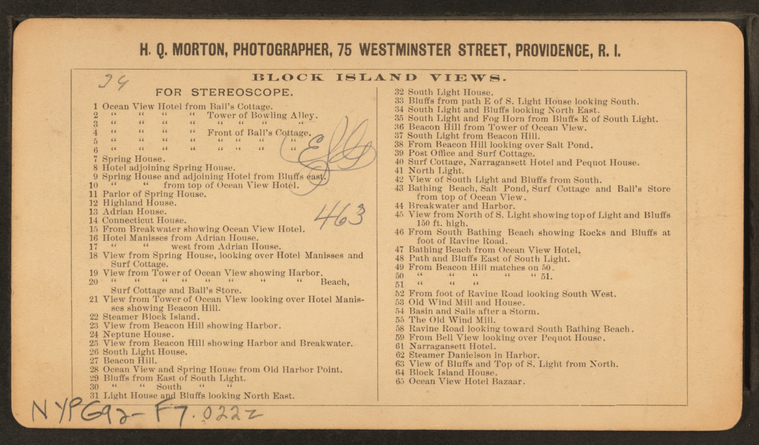 H. Q. MORTON, PHOTOGRAPHER, 75 WESTMINSTER STREET, PROVIDENCE, R. I.
BLOCK ISLAND VIEWS.
24
FOR STEREOSCOPE.
1 Ocean View Hotel from Ball's Cottage.
2 " " " " Tower of Bowling Alley.
3 " " " " " " "
4 " " " " Front of Ball's Cottage.
5 " " " " " " "
6 " " " " " " "
7 Spring House.
8 Hotel adjoining Spring House.
9 Spring House and adjoining Hotel from Bluffs east.
10 " " from top of Ocean View Hotel.
11 Parlor of Spring House.
12 Highland House.
13 Adrian House.
14 Connecticut House.
15 From Breakwater showing Ocean View Hotel.
16 Hotel Manisses from Adrian House.
17 " " west from Adrian House.
18 View from Spring House, looking over Hotel Manisses and
Surf Cottage.
19 View from Tower of Ocean View showing Harbor.
20 " " " " " " " Beach,
Surf Cottage and Ball's Store.
21 View from Tower of Ocean View looking over Hotel Manis-
ses showing Beacon Hill.
22 Steamer Block Island.
23 View from Beacon Hill showing Harbor.
24 Neptune House.
25 View from Beacon Hill showing Harbor and Breakwater.
26 South Light House.
27 Beacon Hill.
28 Ocean View and Spring House from Old Harbor Point.
29 Bluffs from East of South Light.
30 " " South " "
31 Light House and Bluffs looking North East.
32 South Light House.
33 Bluffs from path E of S. Light House looking South.
34 South Light and Bluffs looking North East.
35 South Light and Fog Horn from Bluffs E of South Light.
36 Beacon Hill from Tower of Ocean View.
37 South Light from Beacon Hill.
38 From Beacon Hill looking over Salt Pond.
39 Post Office and Surf Cottage.
40 Surf Cottage, Narragansett Hotel and Pequot House.
41 North Light.
42 View of South Light and Bluffs from South.
43 Bathing Beach, Salt Pond, Surf Cottage and Ball's Store
from top of Ocean View.
44 Breakwater and Harbor.
45 View from North of S. Light showing top of Light and Bluffs
150 ft. high.
46 From South Bathing Beach showing Rocks and Bluffs at
foot of Ravine Road.
47 Bathing Beach from Ocean View Hotel.
48 Path and Bluffs East of South Light.
49 From Beacon Hill matches on 50.
50 " " " " " 51.
51 " " "
52 From foot of Ravine Road looking South West.
53 Old Wind Mill and House.
54 Basin and Sails after a Storm.
55 The Old Wind Mill.
58 Ravine Road looking toward South Bathing Beach.
59 From Bell View looking over Pequot House.
61 Narragansett Hotel.
62 Steamer Danielson in Harbor.
63 View of Bluffs and Top of S. Light from North.
64 Block Island House.
65 Ocean View Hotel Bazaar.
463
NYPG92-F7.022z